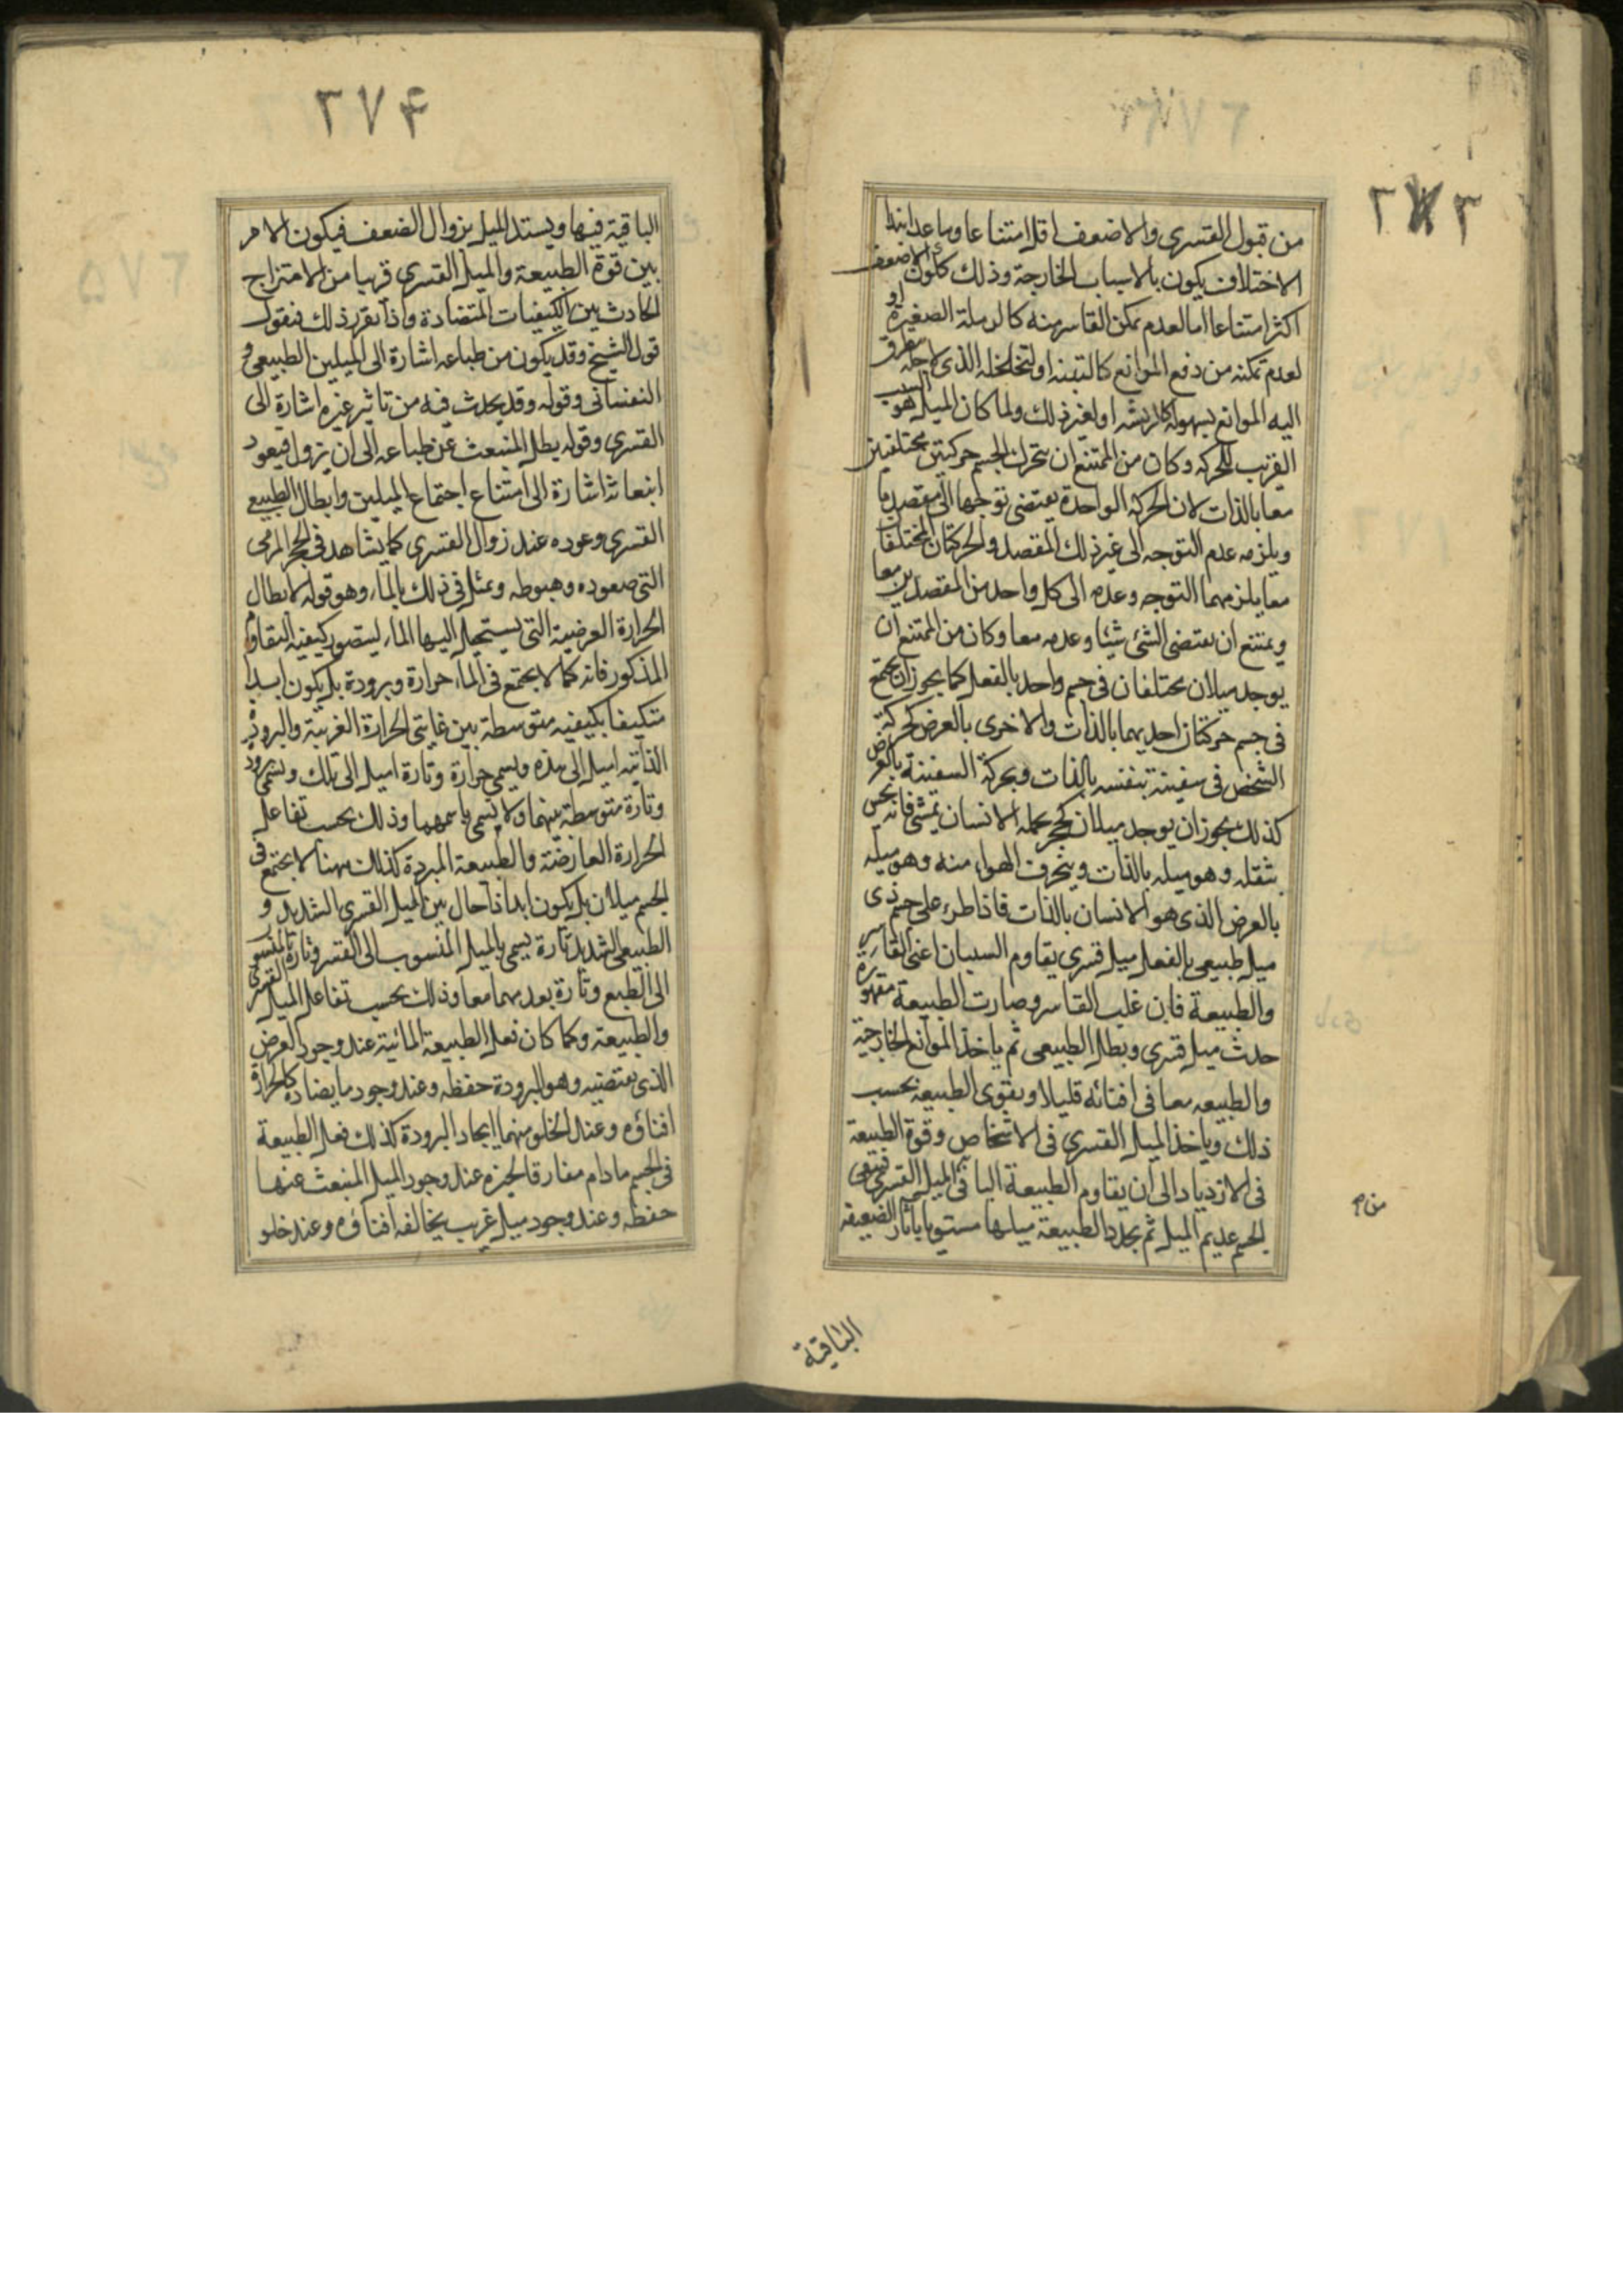 ٣٧٣
من قبول القسرى والاضعف اقل امتناعا وما عدا هذا
الاختلاف يكون بالاسباب الخارجة وذلك ككون الاضعف
اكثر امتناعا اما لعدم تمكن القاسر منه كالرملة الصغيرة او
لعدم تمكنه من دفع الموانع كالتبنة او لتخلخله الذى لاجله يتطرق
اليه الموانع بسهولة كالريشة او لغير ذلك ولما كان الميل هو السبب
القريب للحركة وكان من الممتنع ان يتحرك الجسم حركتين مختلفتين
معا بالذات لان الحركة الواحدة يقتضى توجها الى مقصد ما
ويلزمه عدم التوجه الى غير ذلك المقصد والحركتان المختلفتان
معا يلزمهما التوجه وعدمه الى كل واحد من المقصدين معا
ويمتنع ان يقتضى الشئ شيئا وعدمه معا وكان من الممتنع ان
يوجد ميلان مختلفان فى جسم واحد بالفعل كما يجوز ان يجتمع
فى جسم حركتان احديهما بالذات والاخرى بالعرض كحركة
الشخص فى سفينة بنفسه بالذات وبحركة السفينة بالعرض
كذلك يجوز ان يوجد ميلان كحجر يحمله الانسان يمشى فانه يحس
بثقله وهو ميله بالذات وينخرق الهواء منه وهو ميله
بالعرض الذى هو الانسان بالذات فاذا طرء على جسم ذى
ميل طبيعى بالفعل ميل قسرى يقاوم السببان اعنى القاسر
والطبيعة فان غلب القاسر وصارت الطبيعة مقهورة
حدث ميل قسرى وبطل الطبيعى ثم ياخذ الموانع الخارجية
والطبيعه معا فى افنائه قليلا ويقوى الطبيعه بحسب
ذلك وياخذ الميل القسرى فى الانتقاص وقوة الطبيعة
فى الازدياد الى ان يقاوم الطبيعة الباقى الميل القسرى فيبقى
الجسم عديم الميل ثم يجدد الطبيعة ميلها مستوبا باثار الضعيفة
الباقية
٣٧۴
الباقية فيها ويستد الميل بزوال الضعف فيكون الامر
بين قوة الطبيعة والميل القسرى قريبا من الامتزاج
الحادث بين الكيفيات المتضادة واذا تقرر ذلك فنقول
قول الشيخ وقد يكون من طباعه اشارة الى الميلين الطبيعى و
النفسانى وقوله وقد يحدث فيه من تاثير غيره اشارة الى
القسرى وقوله يبطل المنبعث عن طباعه الى ان يزول فيعود
انبعاثه اشارة الى امتناع اجتماع الميلين وابطال الطبيعى
القسرى وعوده عند زوال القسرى كما يشاهد فى الحجر المرمى
التى صعوده وهبوطه ويمثل فى ذلك بالماء وهو قوله لابطال
الحرارة العرضية التى يستحيل اليها الماء ليتصور كيفية التقاوم
المذكور فانه كما لا يجتمع فى الماء حرارة وبرودة بل يكون ابدا
متكيفا بكيفية متوسطة بين غايتى الحرارة الغريبة والبرودة
الذاتية اميل الى هذه ويسمى حرارة وتارة اميل الى تلك ويسمى برودة
وتارة متوسطة بينهما ولا يسمى باسمهما وذلك بحسب تفاعل
الحرارة العارضة والطبيعة المبردة كذلك ههنا لا يجتمع فى
الجسم ميلان بل يكون ابدا ذا حال بين الميل القسرى الشديد و
الطبيعى الشديد تارة يسمى بالميل المنسوب الى القسر وتارة بالمنسوب
الى الطبع وتارة بعدمهما معا وذلك بحسب تفاعل الميل القسرى
والطبيعة وكما كان فعل الطبيعة المائية عند وجود العرض
الذى يقتضيه وهو البرودة حفظه وعند وجود ما يضاده كالحرارة
افناؤه وعند الخلو منهما ايجاد البرودة كذلك فعل الطبيعة
فى الجسم ما دام مفارقا لحيزه عند وجود الميل المنبعث عنها
حفظه وعند وجود ميل غريب يخالفه افناؤه وعند خلو